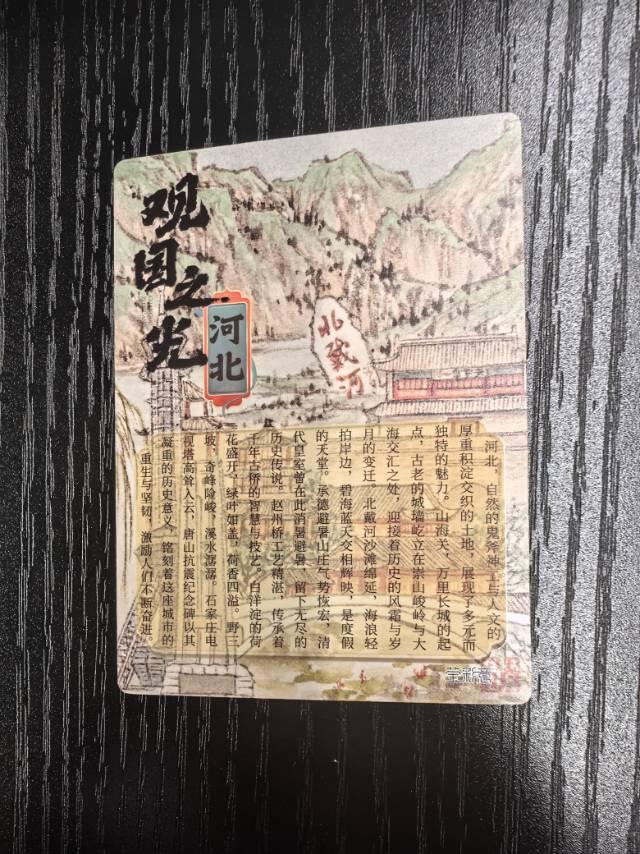 观国之光
河北
北戴河
河北，自然的鬼斧神工与人文的
厚重积淀交织的土地，展现了多元而
独特的魅力。山海关，万里长城的起
点，古老的城墙屹立在崇山峻岭与大
海交汇之处，迎接着历史的风霜与岁
月的变迁。北戴河沙滩绵延，海浪轻
拍岸边，碧海蓝天交相辉映，是度假
的天堂。承德避暑山庄气势恢宏，清
代皇室曾在此消暑避暑，留下无尽的
历史传说。赵州桥工艺精湛，传承着
千年古桥的智慧与技艺。白洋淀的荷
花盛开，绿叶如盖，荷香四溢。野三
坡，奇峰险峻，溪水潺潺。石家庄电
视塔高耸入云，唐山抗震纪念碑以其
凝重的历史意义，铭刻着这座城市的
重生与坚韧，激励人们不断奋进。